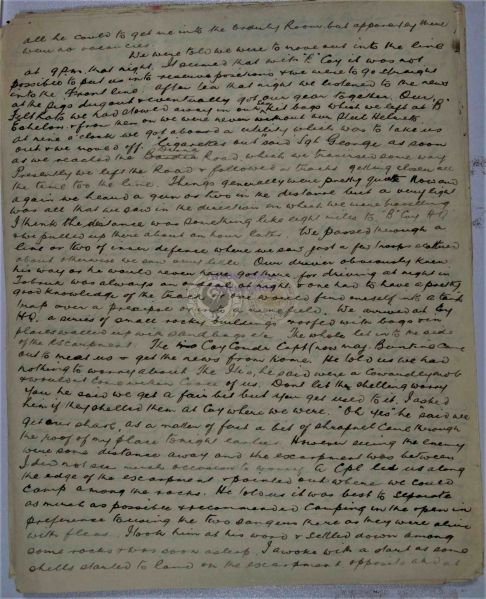 all he could to get me into the Orderly Room but apparently there
were no vacancies.
We were told we were to move out into the line
at 9pm that night. It seemed that with "B" Coy it was not
possible to put us into reserve positions & we were to go straight
into the front line. After tea that night we listened to the news
at the sigs dugout & eventually got our gear together. Our
Felt hats we had stowed away in our kit bags which we left at "B"
Echelon & from then on we were never without our Steel Helmets.
At nine o'clock we got aboard a utility which was to take us
out & we moved off. "Cigarettes out" said Sgt George as soon
as we reached the Bardia Road, which we traversed some way.
Presently we left the Road & followed a track getting closer all
the time to the line. Things generally were pretty quiet. Now and
again we heard a gun or two in the distance but a very light
was all that we saw in the direction in which we were travelling
I think the distance was something like eight miles to "B" Coy HQ
& we pulled up there about an hour later. We passed through a
line or two of inner defence where we saw just a few troops
about otherwise we saw very little. Our driver obviously knew
his way or he would never have got there for driving at night in
Tobruk was always an at night & one had to have a pretty
good knowledge of the tracks or he would find himself into a tank
trap over a precipice or into a minefield. We arrived at Coy
HQ, a series of small rocky buildings roofed with bags in
places walled up with sand bags etc. The whole set into the side
of the escarpment. The Coy Comdr Capt (now Maj.) came
out to meet us & get the news from home. He told us we had
nothing to worry about. The Ities, he said were a cowardly mob
& wouldn't come within cooee of us. Dont let the shelling worry
you he said we get a fair bit but you get used to it. I asked
him if they shelled them at Coy where we were. "Oh Yes" he said we
get our share, as a matter of fact a bit of shrapnel came through
the roof of my place tonight earlier. However seeing the enemy
were some distance away and the escarpment was between
I did not see much occasion to worry. A Cpl led us along
the edge of the escarpment & pointed out where we could
camp among the rocks. He told us it was best to separate
as much as possible & recommended camping in the open in
preference to using the two sangers there as they were alive
with fleas. I took him at his word & settled down among
some rocks & was soon asleep. I awoke with a start as some
shells started to land on the escarpment opposite and at